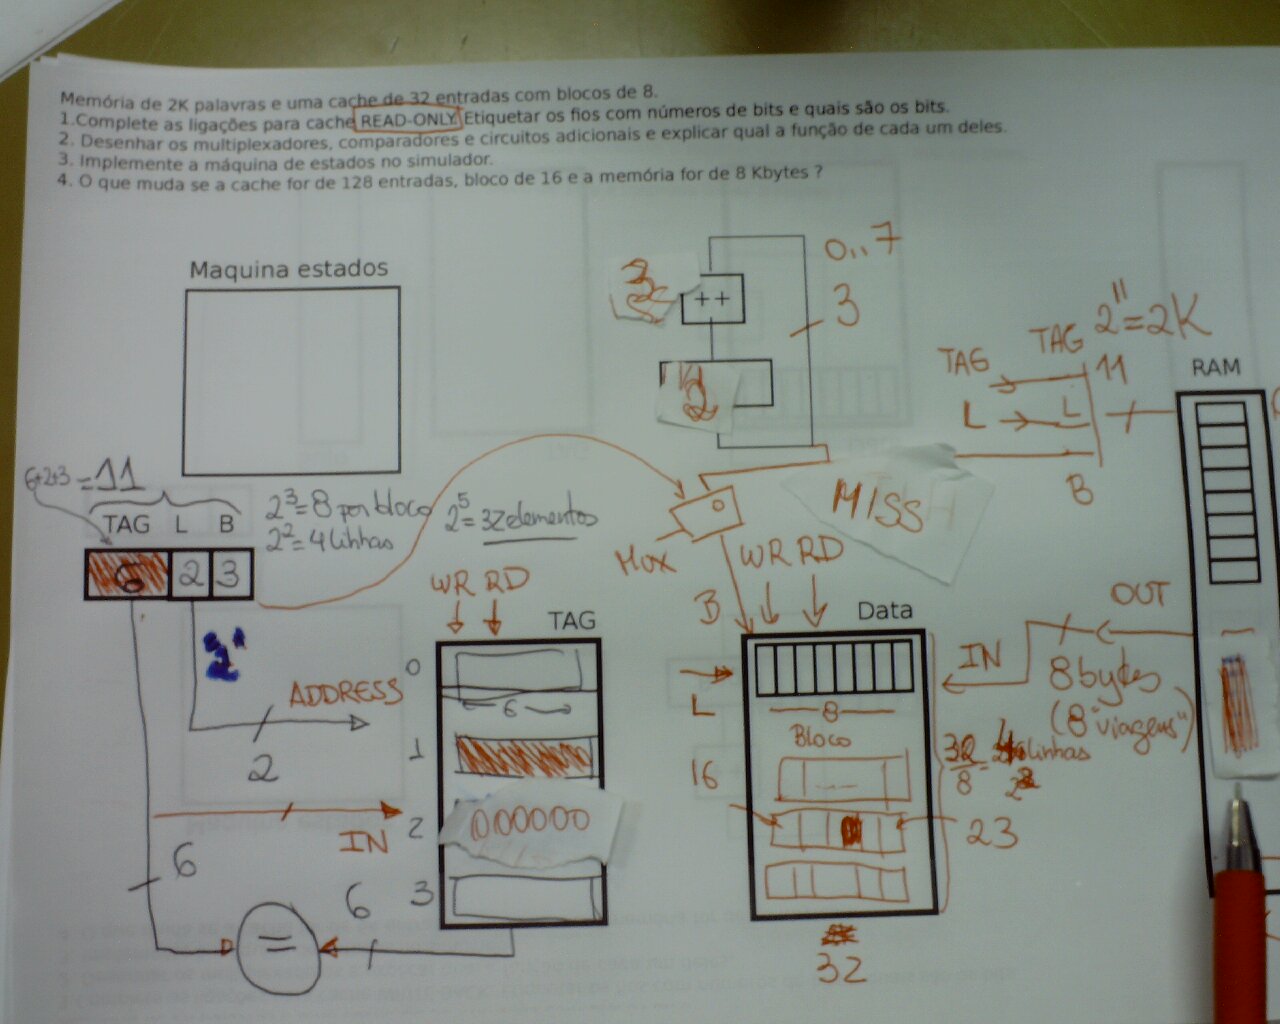 Memória de 2K palavras e uma cache de 32 entradas com blocos de 8.
1.Complete as ligações para cache READ-ONLY Etiquetar os fios com números de bits e quais são os bits.
2. Desenhar os multiplexadores, comparadores e circuitos adicionais e explicar qual a função de cada um deles.
3. Implemente a máquina de estados no simulador.
4. O que muda se a cache for de 128 entradas, bloco de 16 e a memória for de 8 Kbytes ?
Maquina estados
0..7
3
++
3
2
TAG
TAG
2^11=2K
11
L
L
B
RAM
6+2+3 = 11
TAG L B
6 2 3
2^3=8 por bloco
2^2=4 linhas
2^5=32 elementos
MISS
MUX
0
WR RD
WR RD
TAG
B
Data
OUT
IN
8 bytes
(8 "viagens")
ADDRESS
2
0
6
L
8
Bloco
1
16
32/8
linhas
IN
2
000000
23
6
6
3
=
32